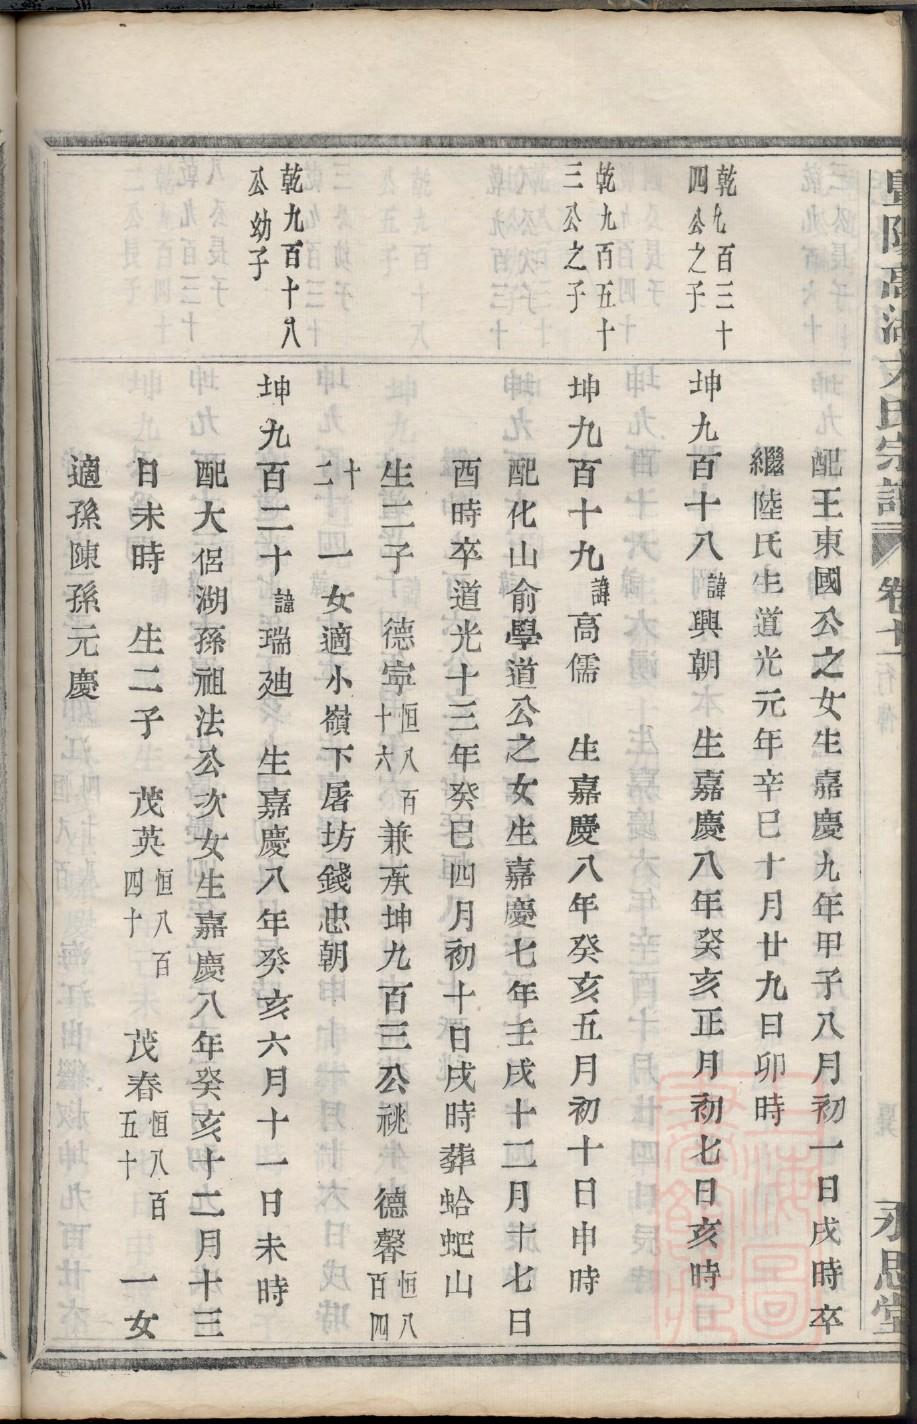 高湖
氏宗譜
卷
永思堂
配王東國公之女生嘉慶九年甲子八月初一日戌時卒
繼陸氏生道光元年辛巳十月廿九日卯時
乾九百三十
四公之子
坤九百十八諱興朝 生嘉慶八年癸亥正月初七日亥時
乾九百五十
三公之子
坤九百十九諱高儒 生嘉慶八年癸亥五月初十日申時
配化山俞學道公之女生嘉慶七年壬戌十二月十七日
酉時卒道光十三年癸巳四月初十日戌時葬蛤蚆山
生二子 德寧恒八百十六兼承坤九百三公祧 德馨恒八百四
十二 一女適小嶺下屠坊錢忠朝
乾九百十八
公幼子
坤九百二十諱瑞廸 生嘉慶八年癸亥六月十一日未時
配大侶湖孫祖法公次女生嘉慶八年癸亥十二月十三
日未時 生二子 茂英恒八百四十 茂春恒八百五十 一女
適孫陳孫元慶